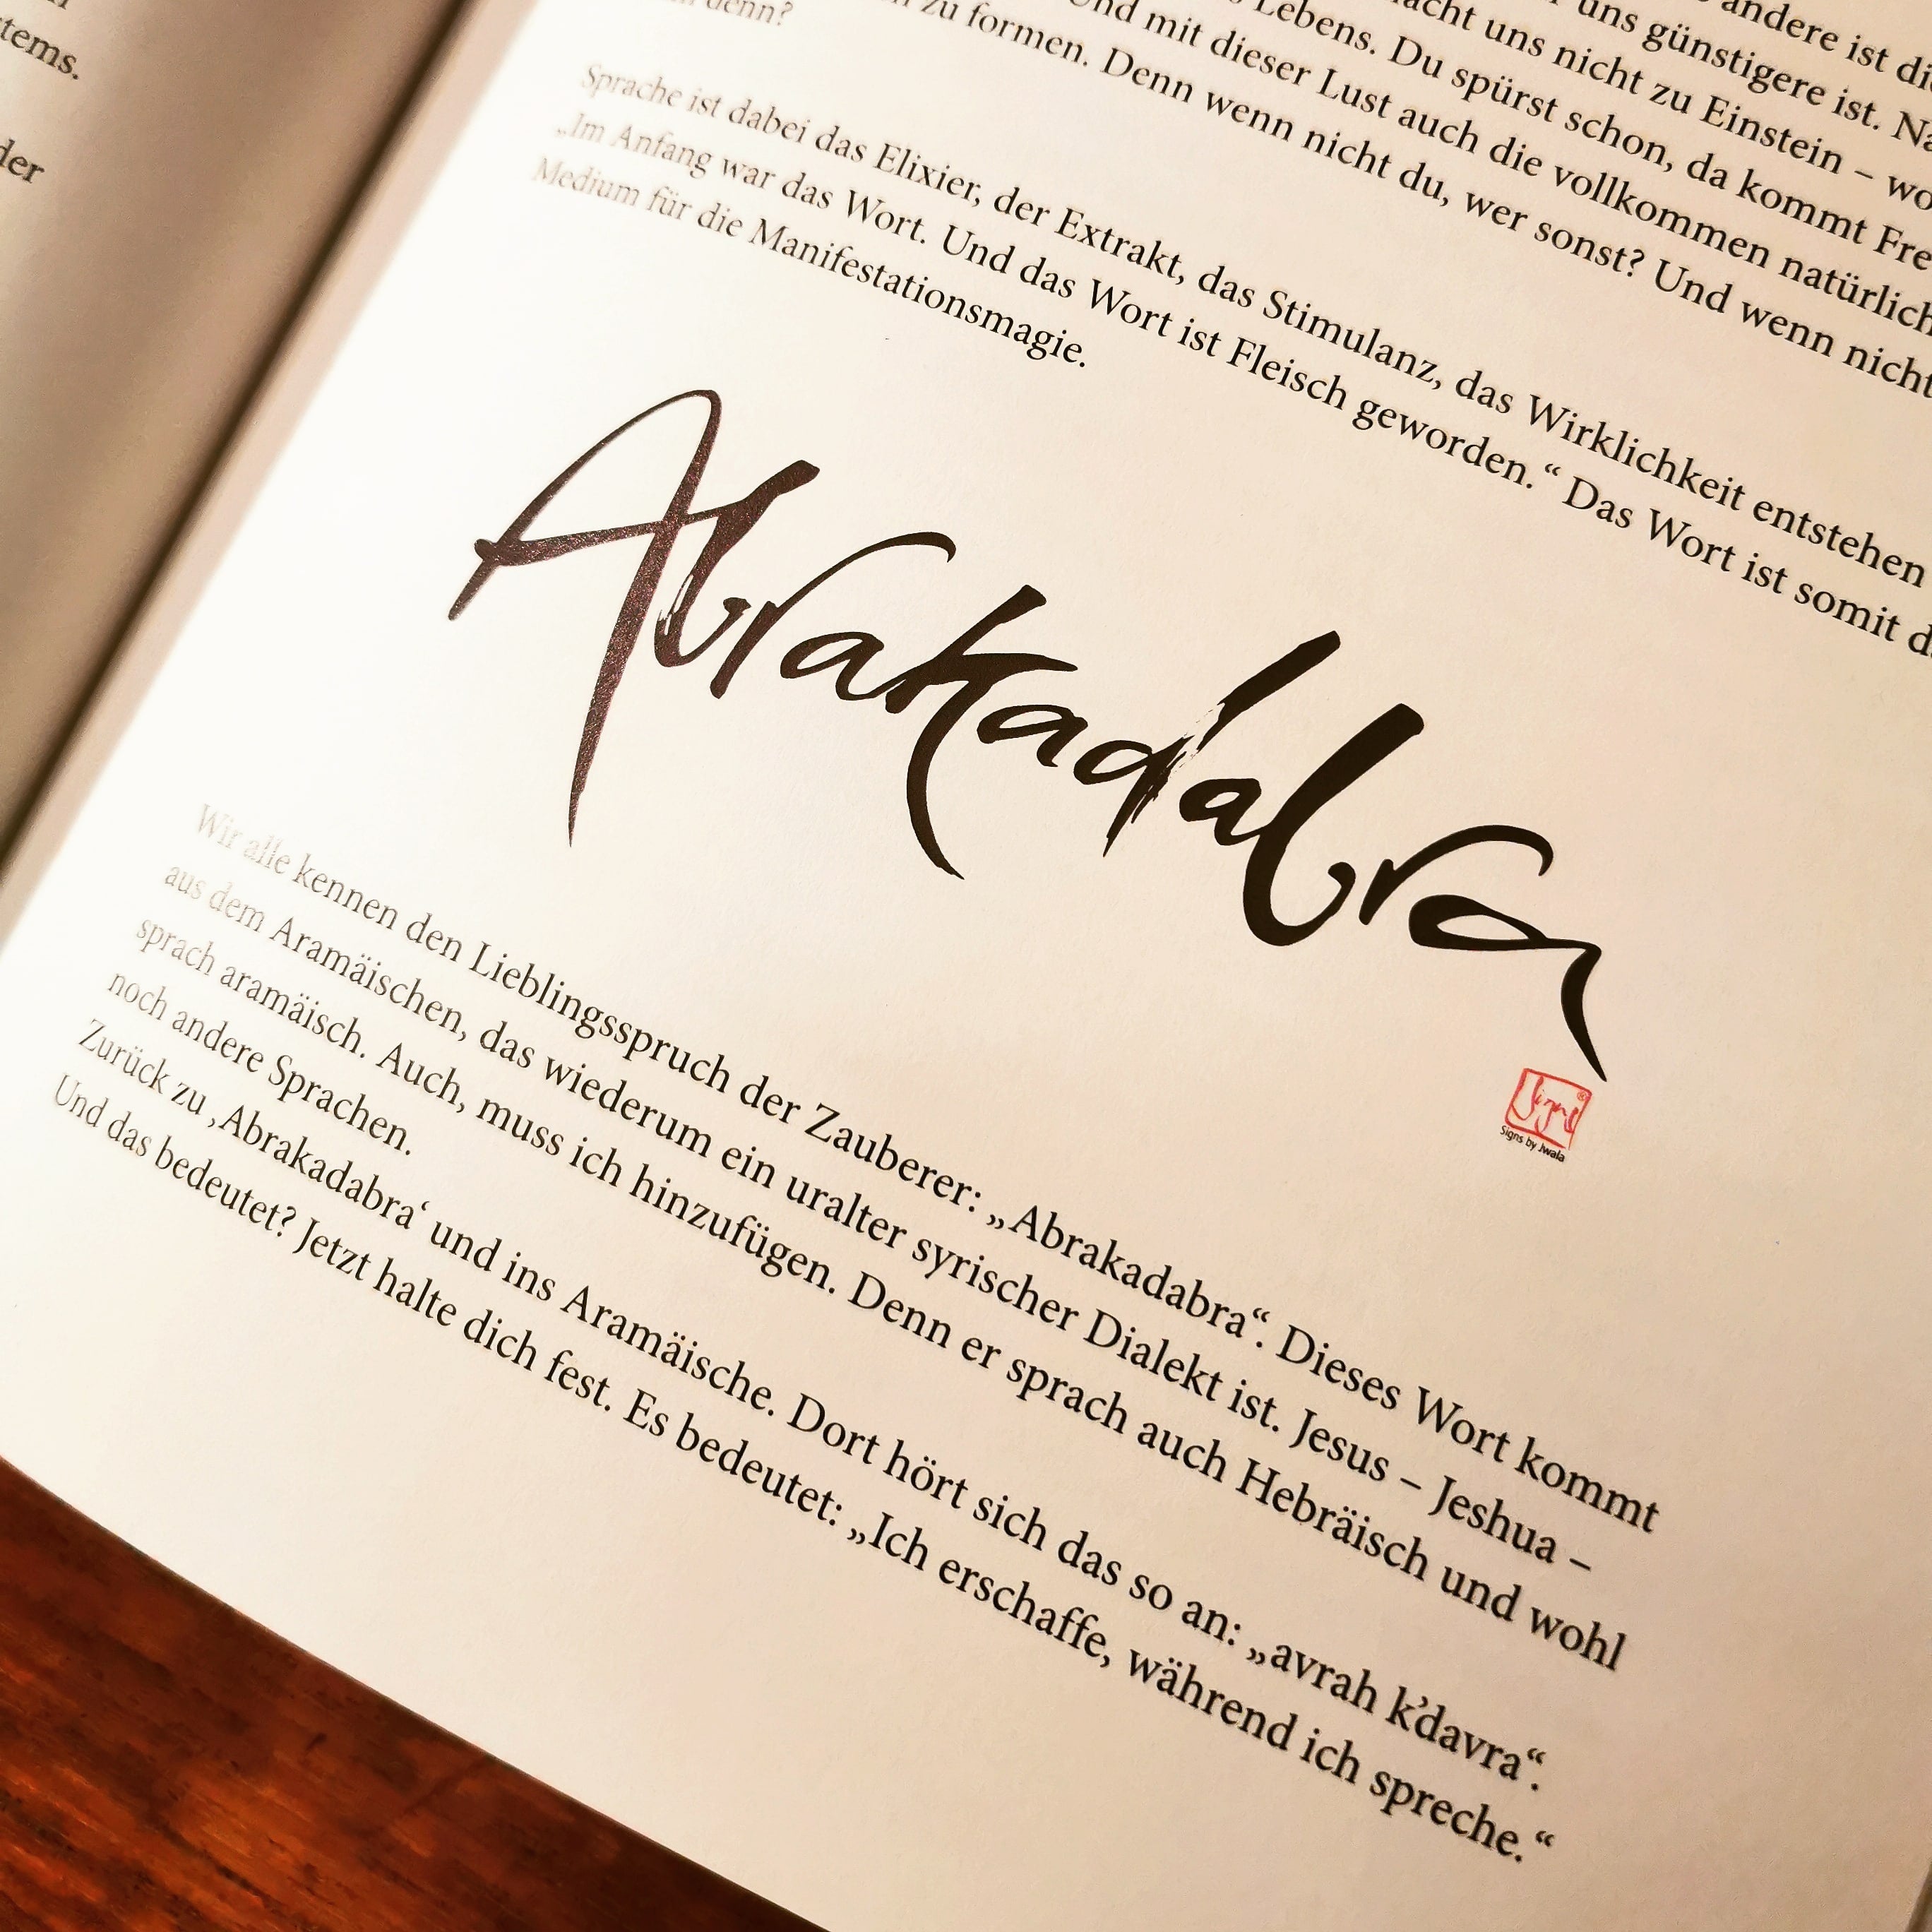 tems.
der
andere ist
uns günstigere ist.
uns nicht zu Einstein –
Lebens. Du spürst schon, da kommt
und mit dieser Lust auch die vollkommen natürlich
zu formen. Denn wenn nicht du, wer sonst? Und wenn nicht
denn?
Sprache ist dabei das Elixier, der Extrakt, das Stimulanz, das Wirklichkeit entstehen
„Im Anfang war das Wort. Und das Wort ist Fleisch geworden.“ Das Wort ist somit
Medium für die Manifestationsmagie.
Abrakadabra
Signs
®
Signs by Jwala
Wir alle kennen den Lieblingsspruch der Zauberer: „Abrakadabra“. Dieses Wort kommt
aus dem Aramäischen, das wiederum ein uralter syrischer Dialekt ist. Jesus – Jeshua –
sprach aramäisch. Auch, muss ich hinzufügen. Denn er sprach auch Hebräisch und wohl
noch andere Sprachen.
Zurück zu ‚Abrakadabra‘ und ins Aramäische. Dort hört sich das so an: „avrah k’davra“.
Und das bedeutet? Jetzt halte dich fest. Es bedeutet: „Ich erschaffe, während ich spreche.“